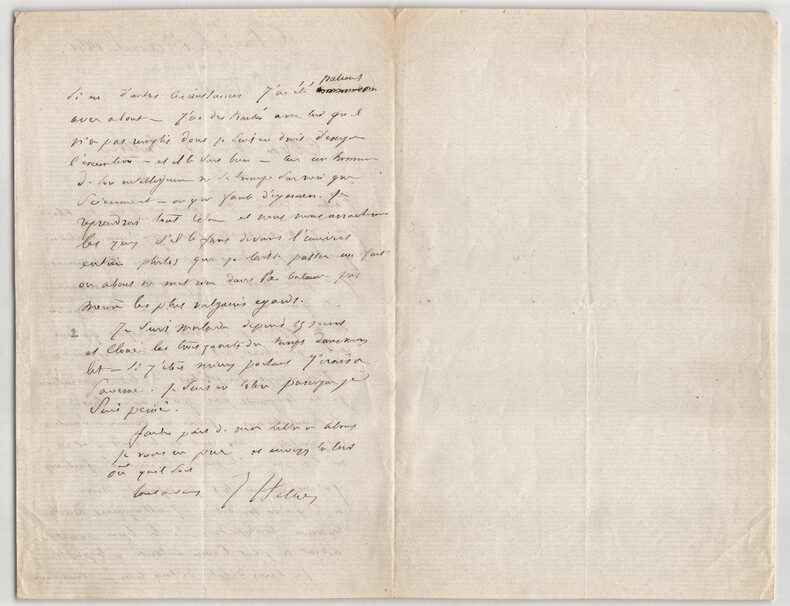 Si en d'autres circonstances j'ai été patient
avec about – j'ai des traités avec lui qu'il
n'a pas remplis dont je suis en droit d'exiger
l'exécution – et il le sait bien – car un homme
de son intelligence ne se trompe sur rien que
sciemment – ou que faute d'examen. Je
reprendrai tout cela et nous nous arracherons
les yeux s'il le faut devant l'univers
entier plutôt que je laisse passer un fait
où about ne met rien dans la balance pas
même les plus vulgaires égards.
2 Je suis malade depuis 15 jours
et cloué les trois quarts du temps dans mon
lit – Si j'étais mieux portant j'irais à
Saverne. Je suis en colère parce que je
suis peiné.
faites part de ma lettre à about
je vous en prie et envoyez la lui
où qu'il soit
tout à vous J Hetzel